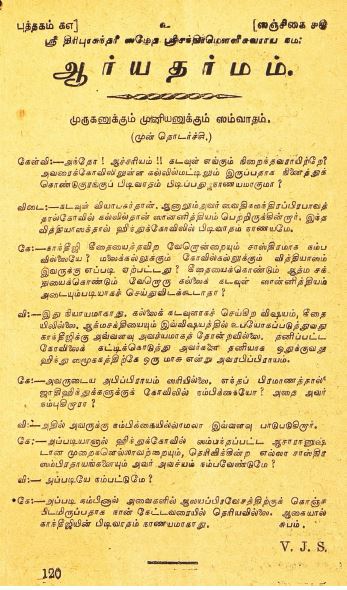 புத்தகம் க௭] உ [ஸஞ்சிகை
ஸ்ரீ திரிபுரசுந்தரீ ஸமேத ஸ்ரீசந்திரமௌளீசுவராய நம:
ஆர்யதர்மம்.
முருகனுக்கும் முனியனுக்கும் ஸம்வாதம்.
(முன் தொடர்ச்சி.)
கேள்வி:—அந்தோ! ஆச்சரியம்!! கடவுள் எங்கும் நிறைந்தவராயிற்றே?
அவரைக்கோவிலிலுள்ள கல்லில்மட்டிலும் இருப்பதாக நினைத்துக்
கொண்டுருங்குப் பிடிவாதம் பிடிப்பது நியாயமாகுமா?
விடை:—கடவுள் வியாபகர்தான். ஆனாலும்அவர் வைதிகமந்திரப்பிரபாவத்
தால்கோவில் கல்லில்தான் ஸாந்நித்தியம் பெற்றிருக்கின்றார். இந்த
வித்தியாஸத்தால் ஹிந்துக்கோவிலில் பிடிவாதம் நியாயமே.
கே:—காந்திஜி கீதையைத்தவிற வேறொன்றையும் சாஸ்திரமாக நம்ப
வில்லையே? மலைக்கல்லுக்கும் கோவில்கல்லுக்கும் வித்தியாஸம்
இவருக்கு எப்படி ஏற்பட்டது? கீதையைக்கொண்டும் ஆத்ம சக்
தியைக்கொண்டும் வேறொரு கல்லைக் கடவுள் ஸாந்நித்தியம்
அடையும்படியாகச் செய்துவிடக்கூடாதா?
வி:—இது நியாயமாகாது. கல்லைக் கடவுளாகச் செய்கிற விஷயம், கீதை
யிலில்லை. ஆத்மசக்தியையும் இவ்விஷயத்தில் உபயோகப்படுத்துவது
காந்திஜிக்கு அவ்வளவு அவச்யமாகத் தோன்றவில்லை. தனிப்பட்ட
கோவிலைக் கட்டிக்கொடுத்து அவர்களை தனியாக ஒதுக்குவது
ஹிந்து ஸமூகத்திற்கே ஒரு மாசு என்று அவரபிப்பிராயம்.
கே:—அவருடைய அபிப்பிராயம் ஸரியில்லை. எந்தப் பிரமாணத்தால்
ஜாதிஹிந்துக்களுக்குக் கோவிலில் நம்பிக்கையோ? அதை அவர்
நம்புகிறாரா?
வி:—அதில் அவருக்கு நம்பிக்கையில்லாமலா இவ்வளவு பாடுபடுகிறார்.
கே:—அப்படியானால் ஹிந்துக்கோவில் ஸம்பந்தப்பட்ட ஆசாரானுஷ்
டான முறைகளெல்லாவற்றையும், தெரிவிக்கின்ற எல்லா சாஸ்திர
ஸம்பிரதாயங்களையும் அவர் அவச்யம் நம்பவேண்டுமே?
வி:—அப்படியே நம்பட்டுமே?
கே:—அப்படி நம்பினால் அவைகளில் ஆலயப்பிரவேசத்திற்குக் கொஞ்ச
மிடமிருப்பதாக நான் கேட்டவரையில் தெரியவில்லை. ஆகையால்
காந்திஜியின் பிடிவாதம் நியாயமாகாது. சுபம்.
V. J. S.
120